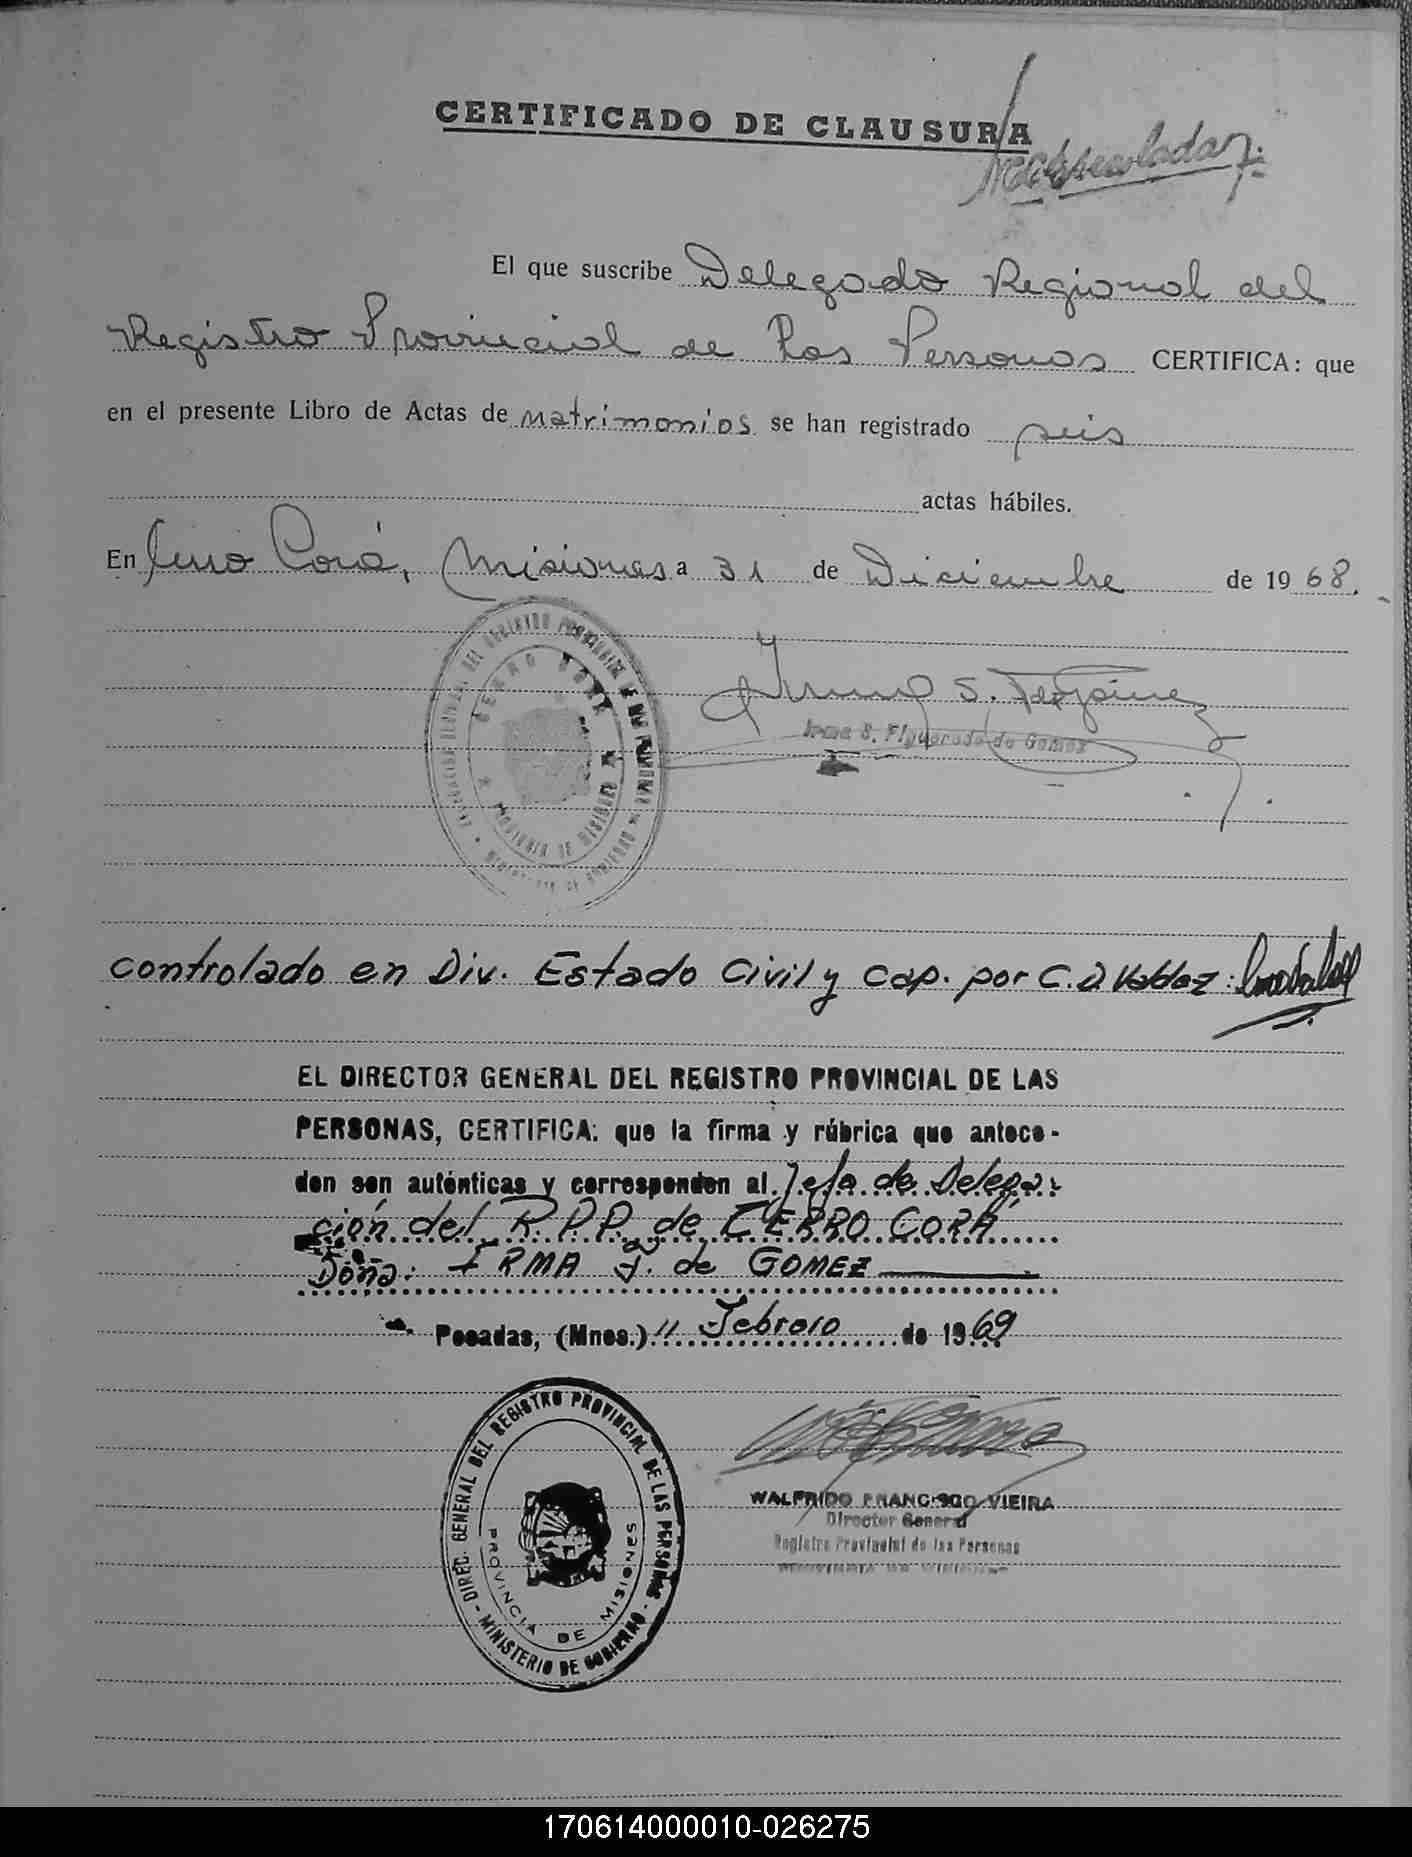 CERTIFICADO DE CLAUSURA
El que suscribe Delegado Regional del
Registro Provincial de las Personas CERTIFICA: que
en el presente Libro de Actas de matrimonios se han registrado seis
actas hábiles.
En Cerro Corá, Misiones a 31 de Diciembre de 1968.
CERRO CORA
PROVINCIA DE MISIONES
Irma S. Figueredo de Gomez
controlado en Div. Estado Civil y Cap. por C. D. Valdez:
EL DIRECTOR GENERAL DEL REGISTRO PROVINCIAL DE LAS
PERSONAS, CERTIFICA: que la firma y rúbrica que antece-
den son auténticas y corresponden al Jefa de Delega-
ción del R.P.P. de CERRO CORÁ
Doña: IRMA F. de GOMEZ
Posadas, (Mnes.) 11 Febrero de 1969
DIREC. GENERAL DEL REGISTRO PROVINCIAL DE LAS PERSONAS - MINISTERIO DE GOBIERNO -
PROVINCIA DE MISIONES
WALFRIDO FRANCISCO VIEIRA
Director General
Registro Provincial de las Personas
170614000010-026275